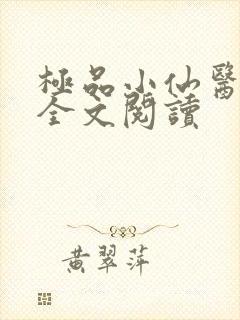 極品小仙醫
全文閱讀
黃翠萍